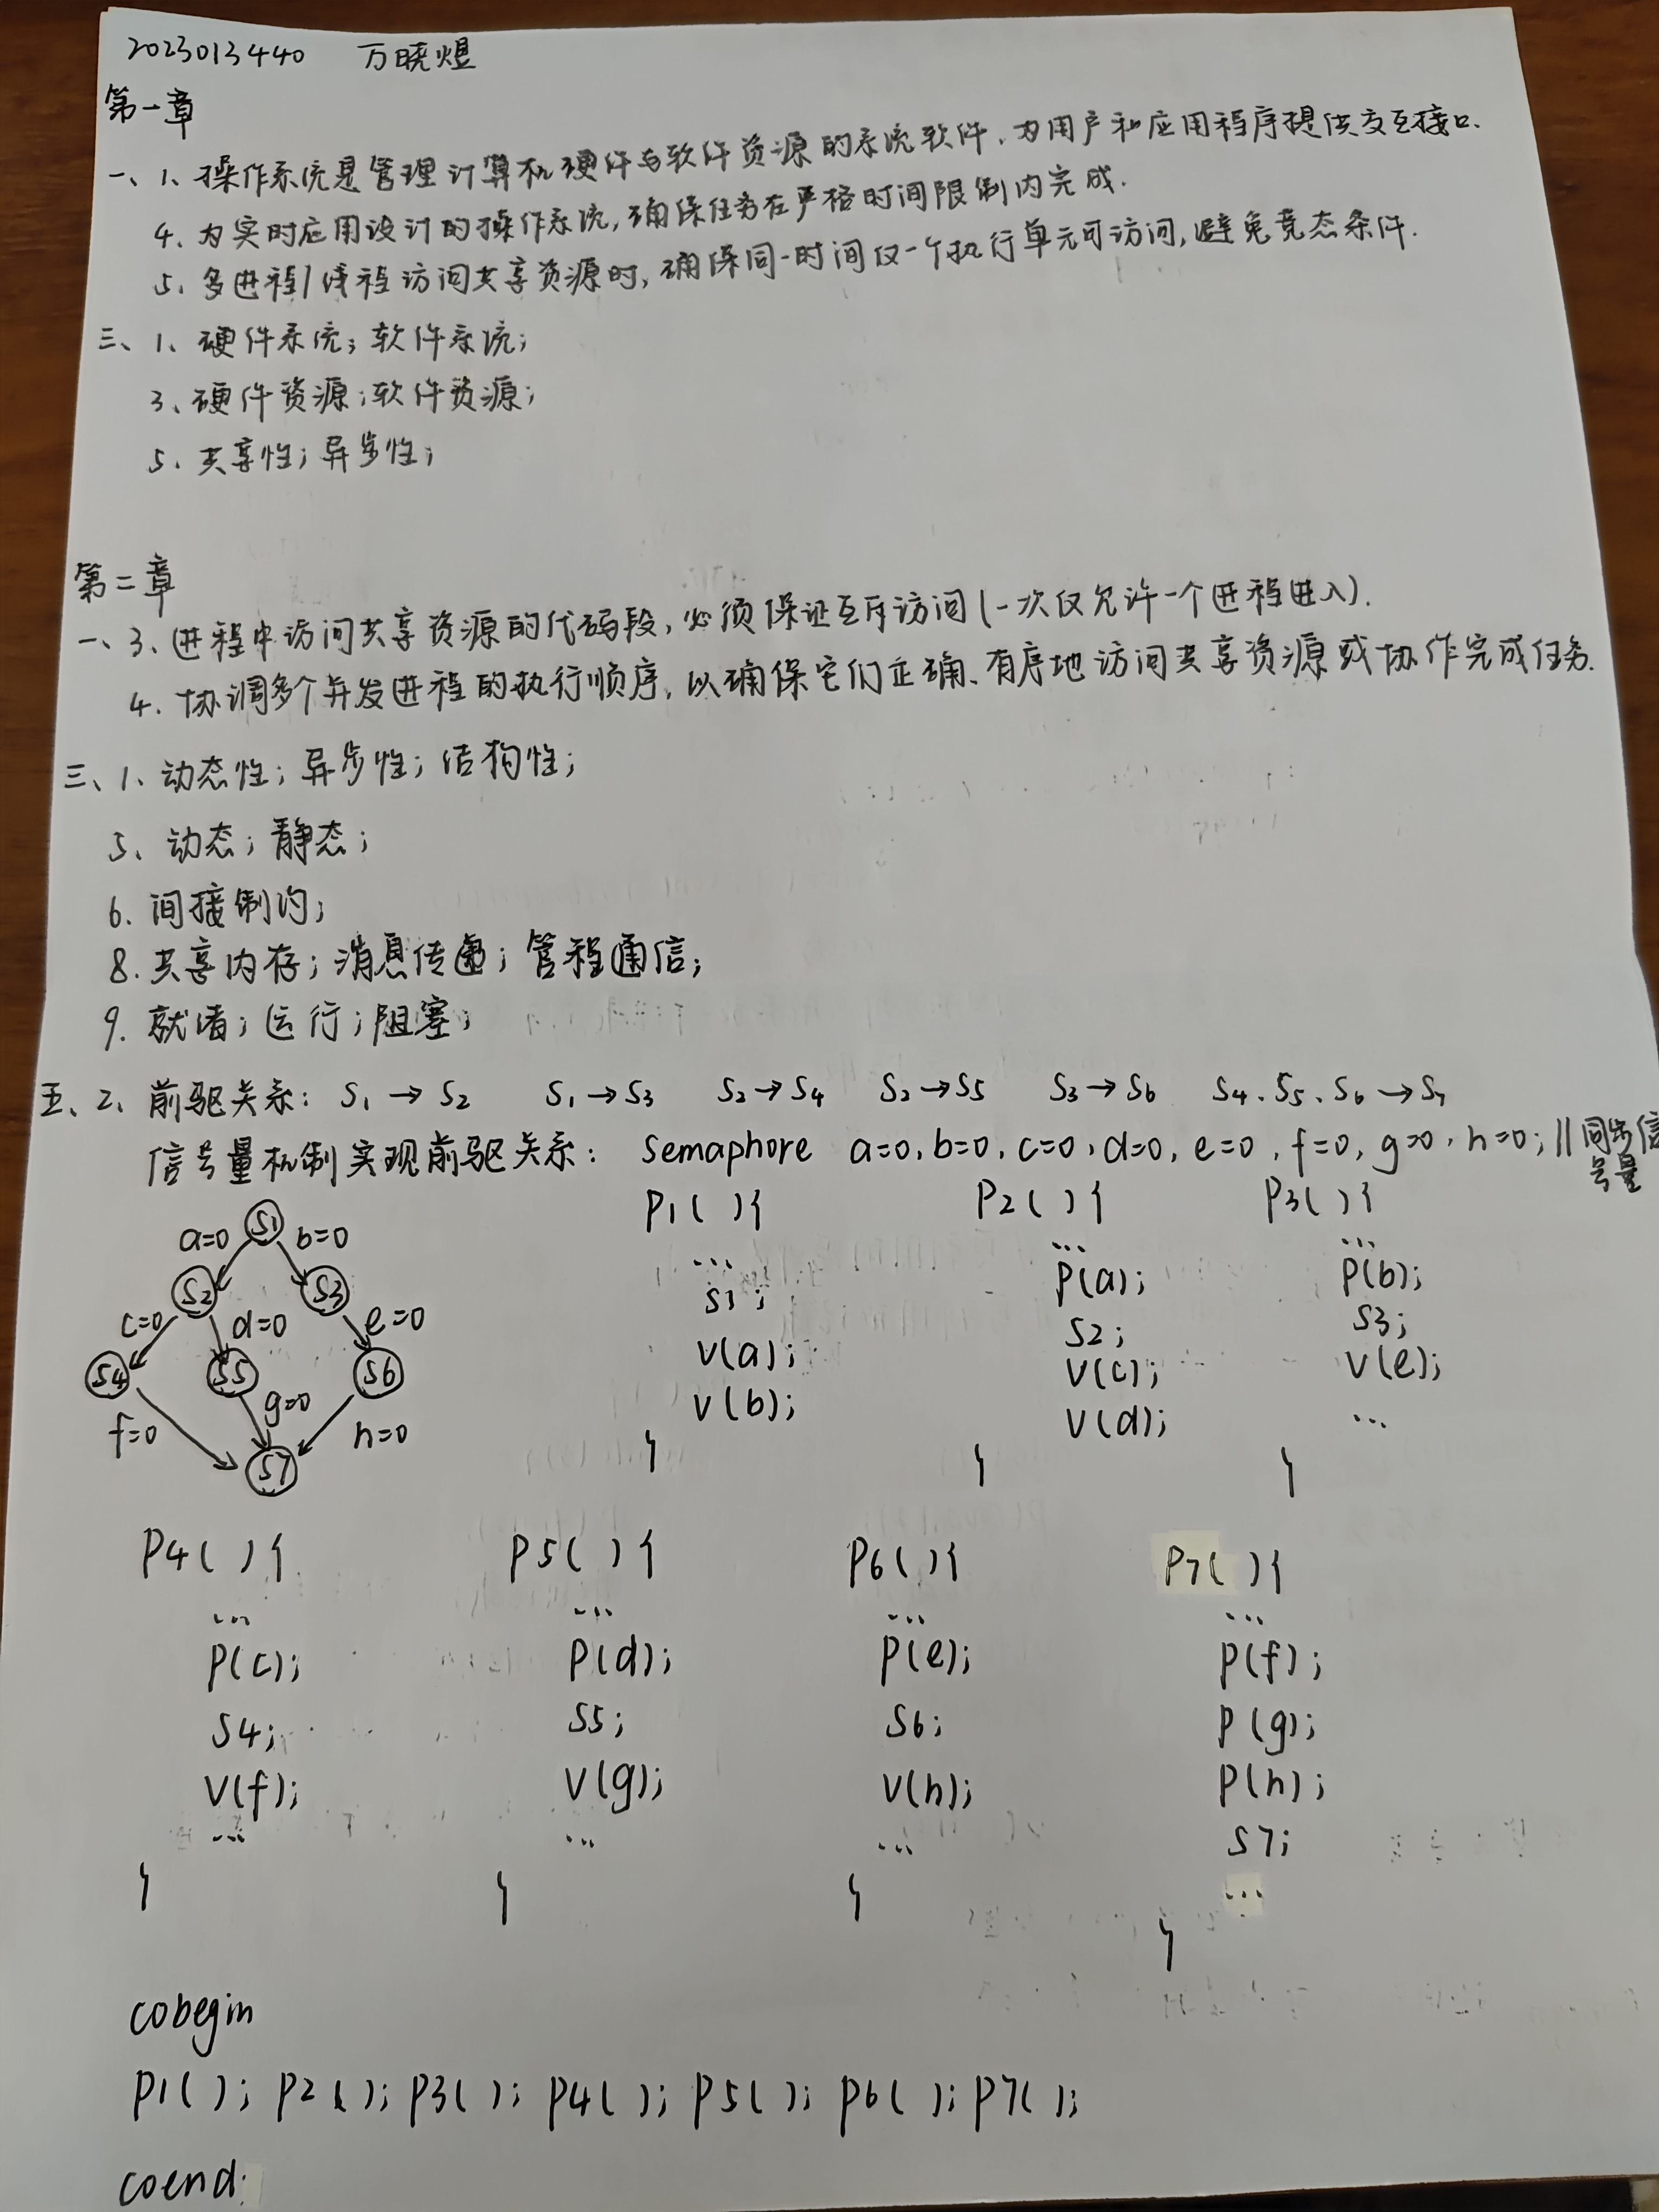 2023013440 万晓煜
第一章
一、1、操作系统是管理计算机硬件与软件资源的系统软件，为用户和应用程序提供交互接口.
4、为实时应用设计的操作系统，确保任务在严格时间限制内完成.
5、多进程/线程访问共享资源时，确保同一时间仅一个执行单元可访问，避免竞态条件.
三、1、硬件系统；软件系统；
3、硬件资源；软件资源；
5、共享性；异步性；
第二章
一、3、进程中访问共享资源的代码段，必须保证互斥访问(一次仅允许一个进程进入).
4、协调多个并发进程的执行顺序，以确保它们正确、有序地访问共享资源或协作完成任务.
三、1、动态性；异步性；结构性；
5、动态；静态；
6. 间接制约；
8. 共享内存；消息传递；管程通信；
9. 就绪；运行；阻塞；
五、2、前驱关系：S₁→S₂ S₁→S₃ S₂→S₄ S₂→S₅ S₃→S₆ S₄、S₅、S₆→S₇
信号量机制实现前驱关系： Semaphore a=0, b=0, c=0, d=0, e=0, f=0, g=0, h=0; //同步信
号量
S1
a=0 b=0
S2 S3
c=0 d=0 e=0
S4 S5 S6
f=0 g=0 h=0
S7
P1( ){
...
S1;
V(a);
V(b);
}
P2( ){
...
P(a);
S2;
V(c);
V(d);
}
P3( ){
...
P(b);
S3;
V(e);
...
}
P4( ){
...
P(c);
S4;
V(f);
...
}
P5( ){
...
P(d);
S5;
V(g);
...
}
P6( ){
...
P(e);
S6;
V(h);
...
}
P7( ){
...
P(f);
P(g);
P(h);
S7;
...
}
cobegin
P1( ); P2( ); P3( ); P4( ); P5( ); P6( ); P7( );
coend;